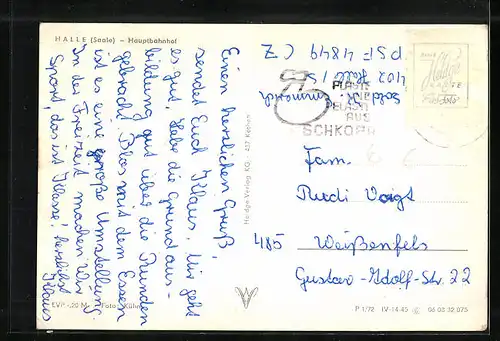 HALLE (Saale) – Hauptbahnhof
Einen herzlichen Gruß,
sendet Euch Klaus. Mir geht
es gut. Habe die Grundaus-
bildung gut über die Runden
gebracht. Blos mit dem Essen
ist es eine große Umstellung
In der Freizeit machen Wir
Sport, das ist Klasse! herzlichst
Klaus
EVP -,20 M Foto: Kühn
Haidge Verlag KG 437 Köthen
Soldat
402 Halle / S
PSF 4849 C Z
PLASTE
UND
ELASTE
AUS
SCHKOPAU
Fam.
Rudi Voigt
485 Weißenfels
Gustav-Adolf-Str. 22
P 1/72 IV-14-45 06 03 32 075